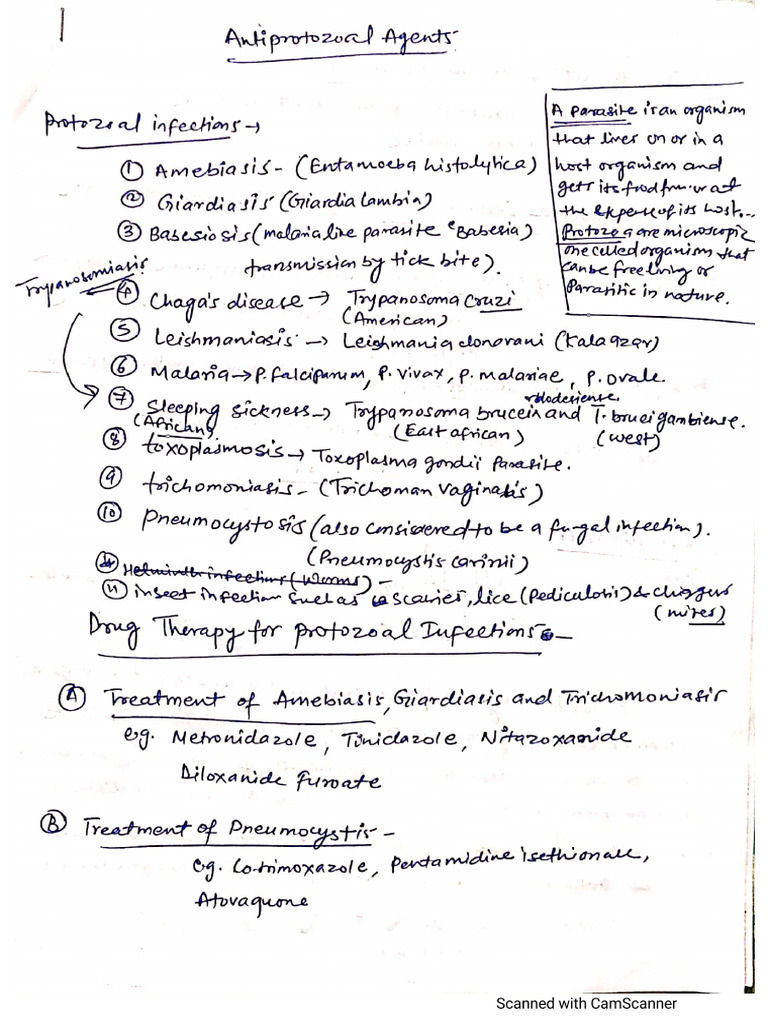 1
Antiprotozoal Agents
Protozoal infections →
① Amebiasis - (Entamoeba histolytica)
② Giardiasis (Giardia lambia)
③ Babesiosis (malaria like parasite "Babesia)
transmission by tick bite).
A parasite is an organism
that lives on or in a
host organism and
gets its food from or at
the expense of its host.
Protozoa are microscopic
one celled organism that
can be free living or
Parasitic in nature.
Trypanosomiasis
④ Chaga's disease → Trypanosoma cruzi
(American)
⑤ Leishmaniasis → Leishmania donovani (Kala azar)
⑥ Malaria → P. falciparum, P. vivax, P. malariae, P. ovale.
⑦ Sleeping sickness → Trypanosoma brucein rhodesiense and T. brucei gambiense.
(African) (East african) (west)
⑧ toxoplasmosis → Toxoplasma gondii parasite.
⑨ trichomoniasis - (Trichoman vaginalis)
⑩ Pneumocystosis (also considered to be a fungal infection).
(Pneumocystis carinii)
Helminth infections (Worms) -
⑪ insect infection such as scabies, lice (Pediculosis) &
(mites)
Drug Therapy for protozoal Infections -
Ⓐ Treatment of Amebiasis, Giardiasis and Trichomoniasis
eg. Metronidazole, Tinidazole, Nitazoxanide
Diloxanide furoate
Ⓑ Treatment of Pneumocystis -
eg. Co-trimoxazole, Pentamidine isethionate,
Atovaquone
Scanned with CamScanner